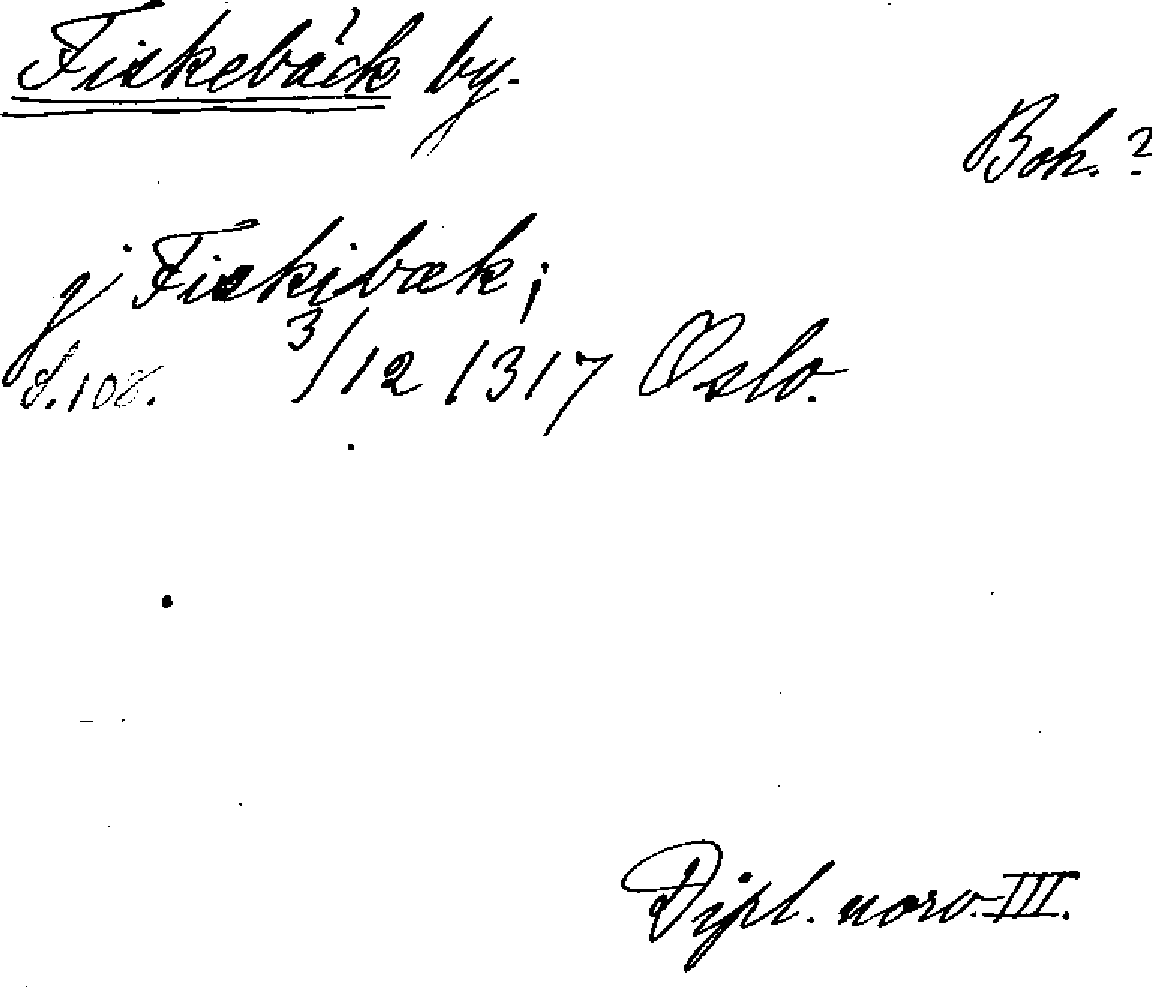 Fiskebäck by.
Boh. ?
j Fiskibæk;
S. 108. 3/12 1317 Oslo.
Dipl. norv. III.